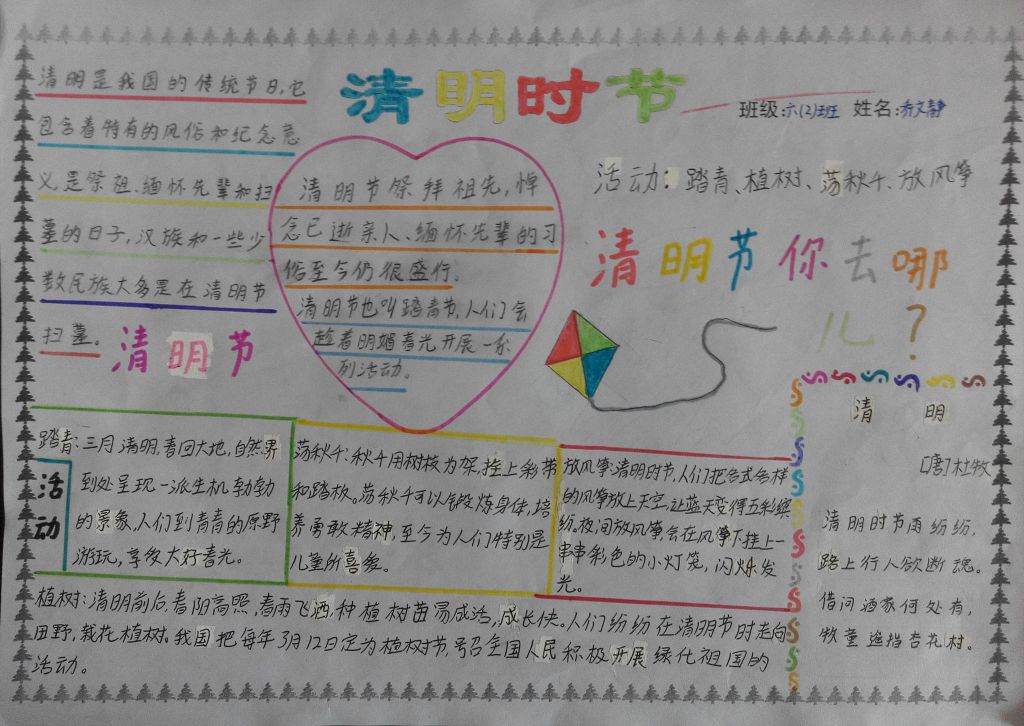 清明时节
班级:六(2)班 姓名:乔文静
清明是我国的传统节日,它
包含着特有的风俗和纪念意
义是祭祖、缅怀先辈和扫
墓的日子,汉族和一些少
数民族大多是在清明节
扫墓。
清明节
清明节祭拜祖先,悼
念已逝亲人、缅怀先辈的习
俗至今仍很盛行.
清明节也叫踏青节,人们会
趁着明媚春光开展一系
列活动。
活动:踏青、植树、荡秋千、放风筝
清明节你去哪
儿?
活动
踏青:三月清明,春回大地,自然界
到处呈现一派生机勃勃
的景象,人们到青青的原野
游玩,享受大好春光。
荡秋千:秋千用树枝为架,拴上彩带
和踏板。荡秋千可以锻炼身体,培
养勇敢精神,至今为人们特别是
儿童所喜爱。
放风筝:清明时节,人们把各式各样
的风筝放上天空,让蓝天变得五彩缤
纷。夜间放风筝会在风筝下挂上一
串串彩色的小灯笼,闪烁发
光。
植树:清明前后,春阳高照,春雨飞洒,种植树苗易成活,成长快。人们纷纷在清明节时走向
田野,栽花植树。我国把每年3月12日定为植树节,号召全国人民积极开展绿化祖国的
活动。
清 明
[唐]杜牧
清明时节雨纷纷,
路上行人欲断魂。
借问酒家何处有,
牧童遥指杏花村。